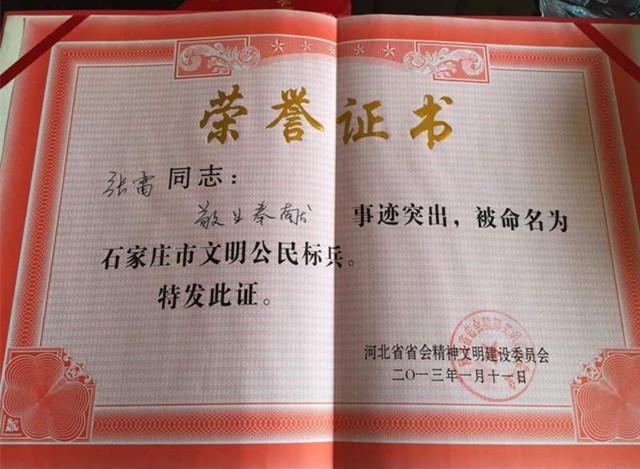 荣誉证书
张雷同志：
敬业奉献 事迹突出，被命名为
石家庄市文明公民标兵。
特发此证。
河北省省会精神文明建设委员会
二〇一三年一月十一日